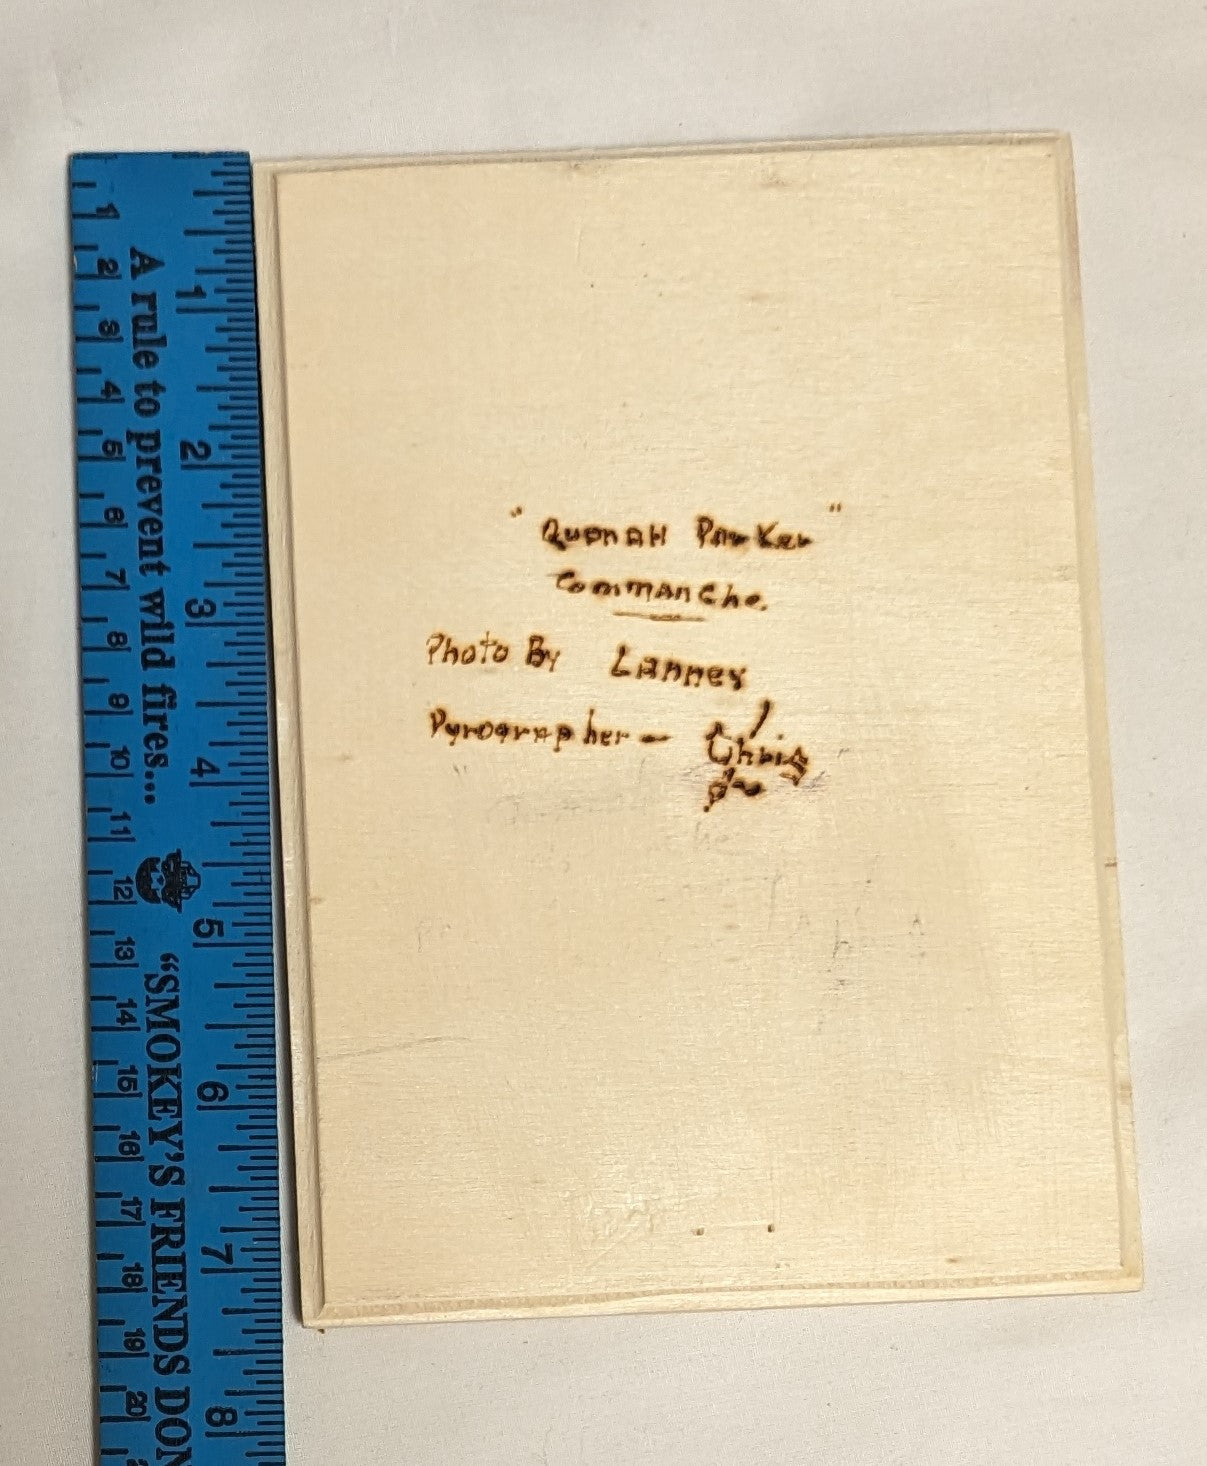 A rule to prevent wild fires...
"SMOKEY'S FRIENDS DON
1 2 3 4 5 6 7 8 9 10 11 12 13 14 15 16 17 18 19 20
1 2 3 4 5 6 7 8
"QuanAH Parker"
CommanChe.
Photo By Lanney
Pyrographer - Chris